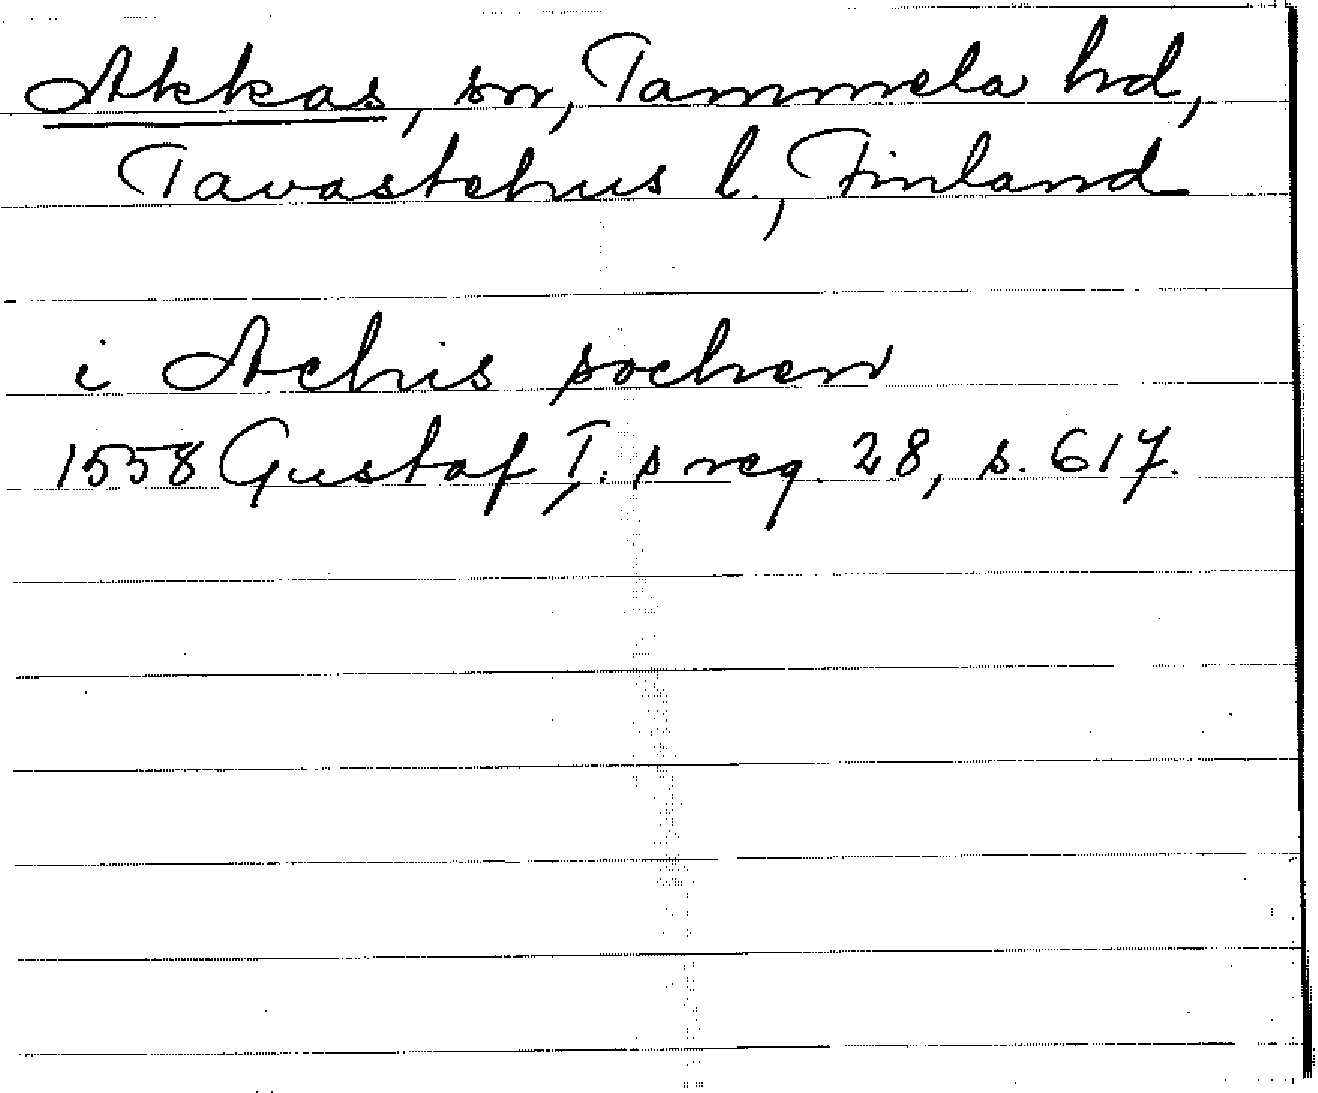 Akkas, sn, Tammela hd,
Tavastehus l., Finland
i Achis sochen
1558 Gustaf I:s reg. 28, s. 617.